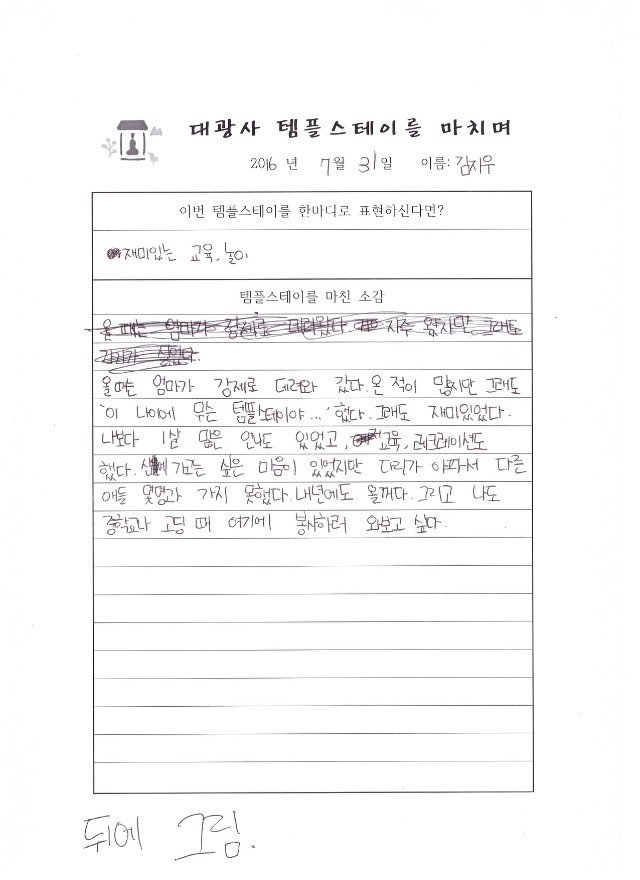 대광사 템플스테이를 마치며
2016 년 7월 31일 이름: 김지우
이번 템플스테이를 한마디로 표현하신다면?
재미있는 교육, 놀이
템플스테이를 마친 소감
올 때는 엄마가 강제로 데려왔다. 자주 왔지만 그래도
가기가 싫었다.
올때는 엄마가 강제로 데려와 갔다. 온 적이 많지만 그래도
'이 나이에 무슨 템플스테이야...' 했다. 그래도 재미있었다.
나보다 1살 많은 언니도 있었고, 교육, 레크레이션도
했다. 가고는 싶은 마음이 있었지만 다리가 아파서 다른
애들 몇명과 가지 못했다. 내년에도 올꺼다. 그리고 나도
중학교나 고딩 때 여기에 봉사하러 와보고 싶다.
뒤에 그림.